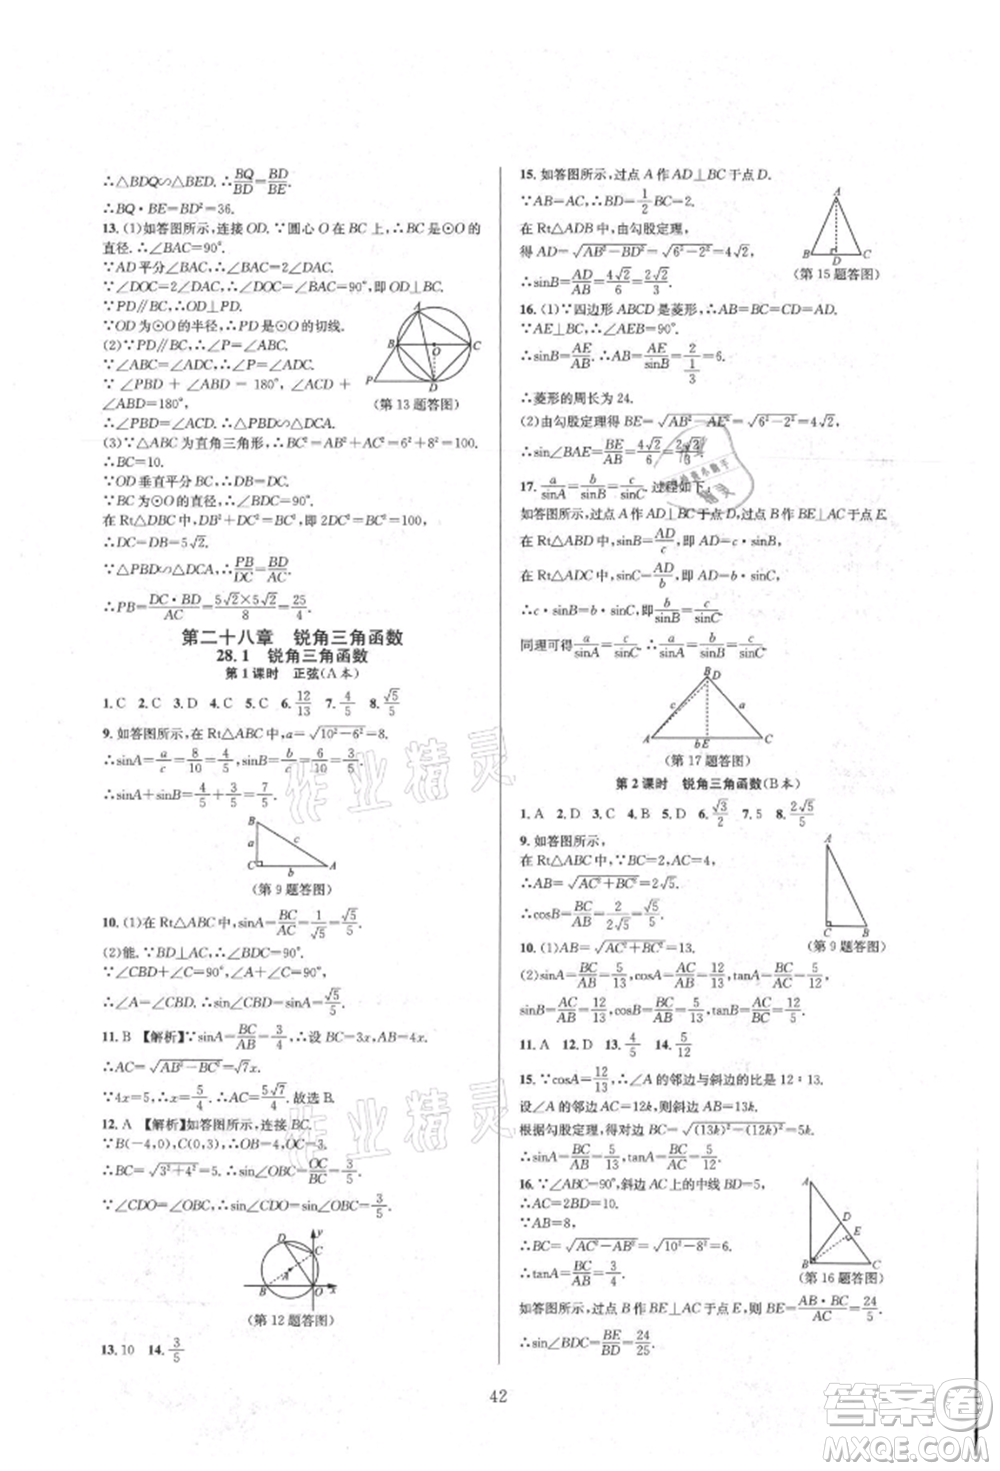 ∴△BDQ∽△BED. ∴BQ/BD=BD/BE.
∴BQ·BE=BD²=36.
13. (1)如答图所示,连接OD. ∵圆心O在BC上,∴BC是⊙O的
直径. ∴∠BAC=90°.
∵AD平分∠BAC,∴∠BAC=2∠DAC.
∵∠DOC=2∠DAC,∴∠DOC=∠BAC=90°,即OD⊥BC.
∵PD∥BC,∴OD⊥PD.
∵OD为⊙O的半径,∴PD是⊙O的切线.
(2)∵PD∥BC,∴∠P=∠ABC.
∵∠ABC=∠ADC,∴∠P=∠ADC.
∵∠PBD+∠ABD=180°,∠ACD+
∠ABD=180°,
∴∠PBD=∠ACD. ∴△PBD∽△DCA.
(第13题答图)
(3)∵△ABC为直角三角形,∴BC²=AB²+AC²=6²+8²=100.
∴BC=10.
∵OD垂直平分BC,∴DB=DC.
∵BC为⊙O的直径,∴∠BDC=90°.
在Rt△DBC中,DB²+DC²=BC²,即2DC²=BC²=100,
∴DC=DB=5√2.
∵△PBD∽△DCA,∴PB/DC=BD/AC.
∴PB=DC·BD/AC=5√2×5√2/8=25/4.
第二十八章 锐角三角函数
28.1 锐角三角函数
第1课时 正弦(A本)
1. C 2. C 3. D 4. C 5. C 6. 12/13 7. 3/4 8. √5/5
9. 如答图所示,在Rt△ABC中,a=√(10²-6²)=8.
∴sinA=a/c=8/10=4/5,sinB=b/c=6/10=3/5.
∴sinA+sinB=4/5+3/5=7/5.
B
a
c
C
b
A
(第9题答图)
10. (1)在Rt△ABC中,sinA=BC/AC=1/√5=√5/5.
(2)能. ∵BD⊥AC,∴∠BDC=90°.
∴∠CBD+∠C=90°,∠A+∠C=90°,
∴∠A=∠CBD. ∴sin∠CBD=sinA=√5/5.
11. B 【解析】∵sinA=BC/AB=3/4,∴设BC=3x,AB=4x.
∴AC=√(AB²-BC²)=√7x.
∵4x=5,∴x=5/4. ∴AC=5√7/4. 故选B.
12. A 【解析】如答图所示,连接BC.
∵B(-4,0),C(0,3),∴OB=4,OC=3.
∴BC=√(3²+4²)=5. ∴sin∠OBC=OC/BC=3/5.
∵∠CDO=∠OBC,∴sin∠CDO=sin∠OBC=3/5.
D
y
C
A
B
O
x
(第12题答图)
13. 10 14. 3/5
15. 如答图所示,过点A作AD⊥BC于点D.
∵AB=AC,∴BD=1/2BC=2.
在Rt△ADB中,由勾股定理,
得AD=√(AB²-BD²)=√(6²-2²)=4√2.
∴sinB=AD/AB=4√2/6=2√2/3.
A
B
D
C
(第15题答图)
16. (1)∵四边形ABCD是菱形,∴AB=AD.
∵AE⊥BC,∴∠AEB=90°.
∵sinB=AE/AB,∴AB=AE/sinB=2/(1/3)=6.
∴菱形的周长为24.
(2)由勾股定理得BE=√(AB²-AE²)=√(6²-2²)=4√2.
∴sin∠BAE=BE/AB=4√2/6=2√2/3.
17. a/sinA=b/sinB=c/sinC. 过程如下:
如答图所示,过点A作AD⊥BC于点D,过点B作BE⊥AC于点E.
在Rt△ABD中,sinB=AD/c,即AD=c·sinB.
在Rt△ADC中,sinC=AD/b,即AD=b·sinC.
∴c·sinB=b·sinC. ∴b/sinB=c/sinC.
同理可得a/sinA=c/sinC. ∴a/sinA=b/sinB=c/sinC.
B
D
c
a
A
b
E
C
(第17题答图)
第2课时 锐角三角函数(B本)
1. A 2. D 3. C 4. B 5. D 6. √3/2 7. 5 8. 2√5/5
9. 如答图所示,
在Rt△ABC中,∵BC=2,AC=4,
∴AB=√(AC²+BC²)=2√5.
∴cosB=BC/AB=2/2√5=√5/5.
A
C
B
(第9题答图)
10. (1)AB=√(AC²+BC²)=13.
(2)sinA=BC/AB=5/13,cosA=AC/AB=12/13,tanA=BC/AC=5/12,
sinB=AC/AB=12/13,cosB=BC/AB=5/13,tanB=AC/BC=12/5.
11. A 12. D 13. 4/5 14. 5/12
15. ∵cosA=12/13,∴∠A的邻边与斜边的比是12∶13.
设∠A的邻边为12k,则斜边为13k.
根据勾股定理,得对边BC=√((13k)²-(12k)²)=5k.
∴sinA=5/13,tanA=5/12.
16. ∵∠ABC=90°,斜边AC上的中线BD=5,
∴AC=2BD=10.
∵AB=8,
∴BC=√(AC²-AB²)=6.
∴tanA=BC/AB=3/4.
A
D
E
B
C
(第16题答图)
如答图所示,过点B作BE⊥AC于点E,则BE=AB·BC/AC=24/5.
∴sin∠BDC=BE/BD=24/25.
42
作业精灵
作业精灵
答案圈
MXQE.COM